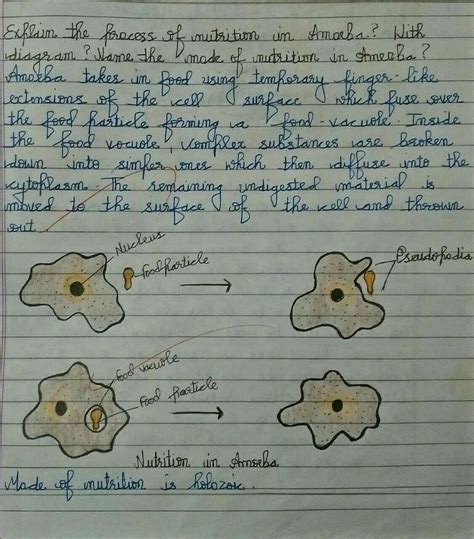 Explain the process of nutrition in Amoeba? With
diagram? Name the mode of nutrition in Amoeba?
Amoeba takes in food using temporary finger-like
extensions of the cell surface which fuse over
the food particle forming a food-vacuole. Inside
the food vocuole, complex substances are broken
down into simpler ones which then diffuse into the
cytoplasm. The remaining undigested material is
moved to the surface of the cell and thrown
out.
Nucleus
Foodparticle
Pseudopodia
Food vacuole
Food particle
Nutrition in Amoeba
Mode of nutrition is holozoic.